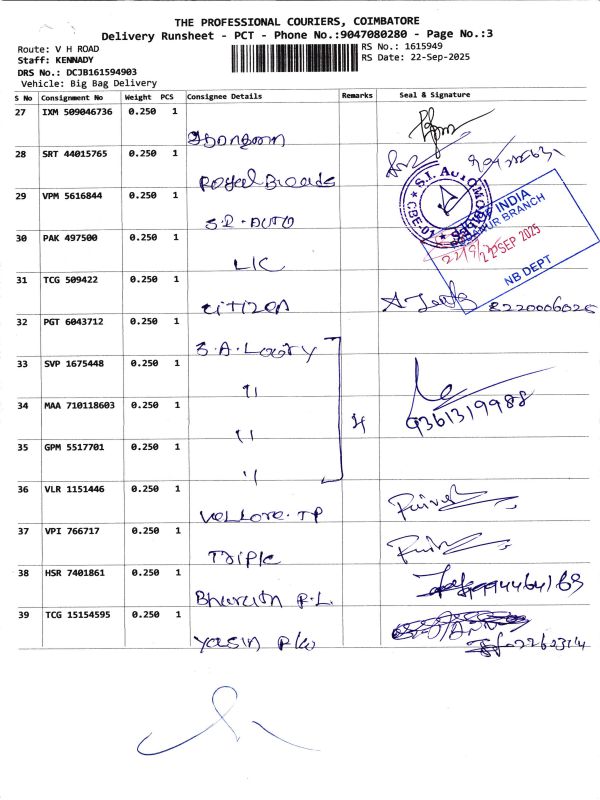 THE PROFESSIONAL COURIERS, COIMBATORE
Delivery Runsheet - PCT - Phone No.:9047080280 - Page No.:3
Route: V H ROAD
RS No.: 1615949
Staff: KENNADY
RS Date: 22-Sep-2025
DRS No.: DCJB161594903
Vehicle: Big Bag Delivery
S No Consignment No Weight PCS Consignee Details Remarks Seal & Signature
27 IXM 509046736 0.250 1
28 SRT 44015765 0.250 1
Royal Broads
29 VPM 5616844 0.250 1
S.I. AUTOMOBILES
CBE-01
S.I. AUTO
INDIA
BRANCH
22 SEP 2025
NB DEPT
30 PAK 497500 0.250 1
LIC
31 TCG 509422 0.250 1
citizen
8220006025
32 PGT 6043712 0.250 1
S.A. Lorry
33 SVP 1675448 0.250 1
"
34 MAA 710118603 0.250 1
4
9361319988
"
35 GPM 5517701 0.250 1
"
36 VLR 1151446 0.250 1
Vellore. TP
37 VPI 766717 0.250 1
Triple
38 HSR 7401861 0.250 1
Bharath P.L.
39 TCG 15154595 0.250 1
Yasin